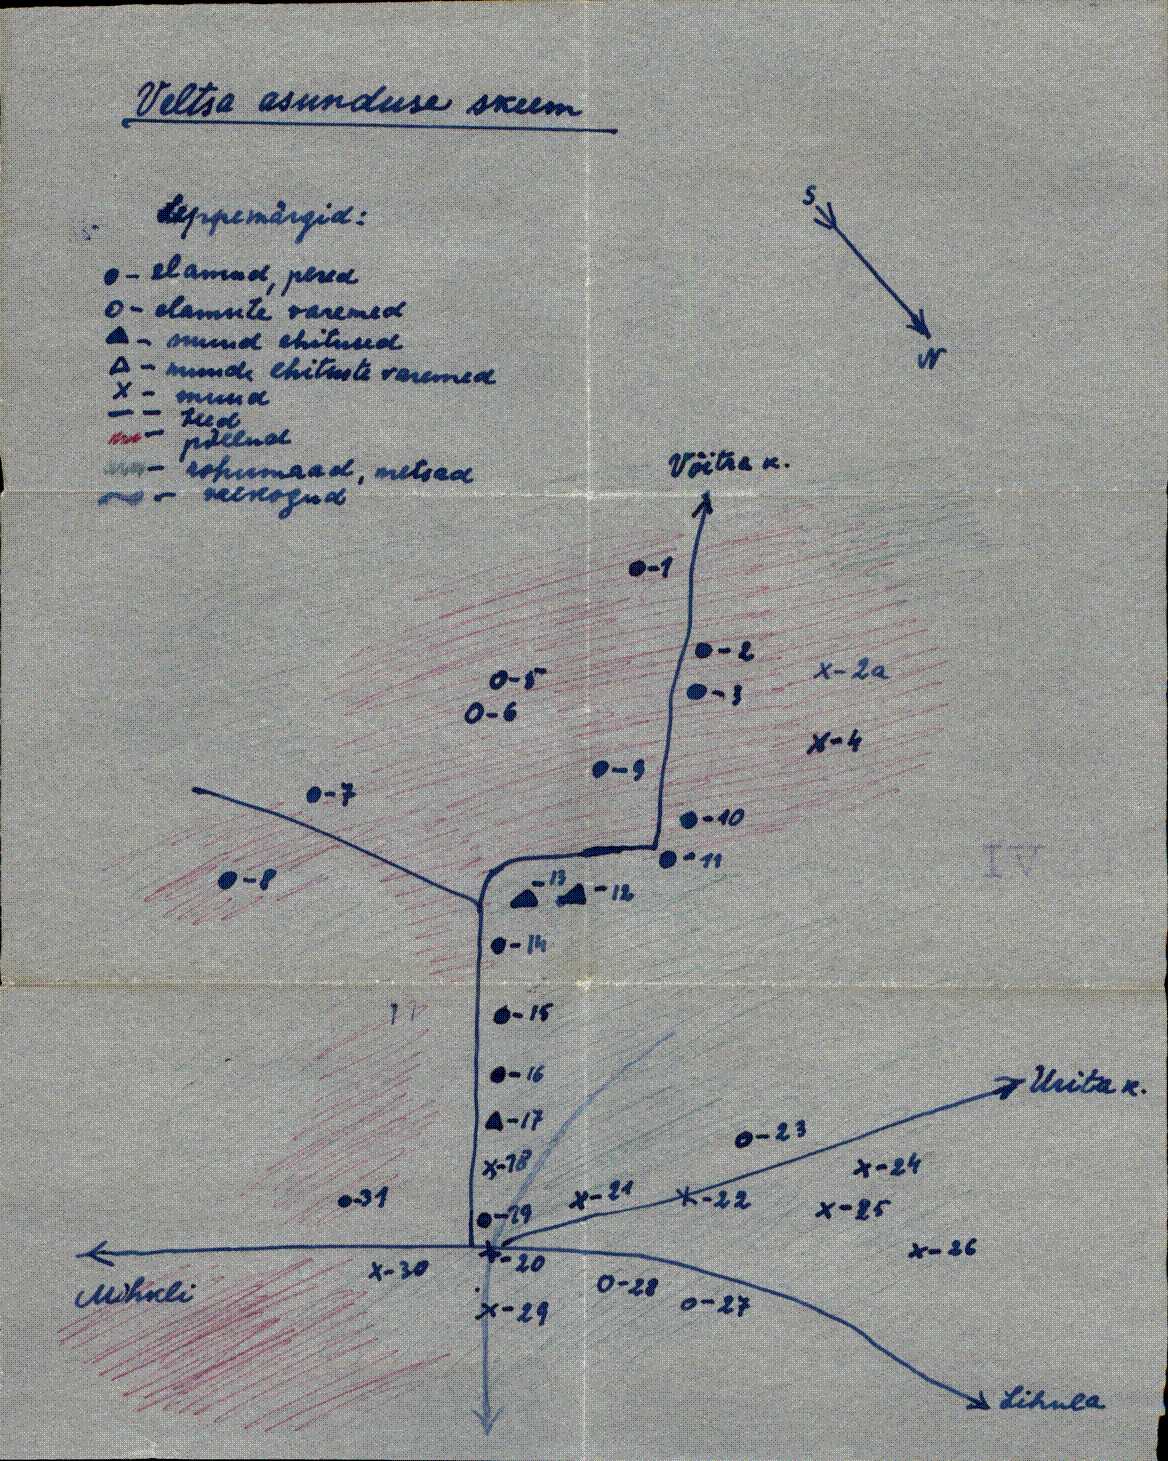 Veltsa asunduse skeem
Leppemärgid:
- elamud, pered
- elamute varemed
- muud ehitused
- muude ehituste varemed
x - muud
- teed
- põllud
- rohumaad, metsad
- veekogud
S
N
Võitra k.
-1
-2
x-2a
-3
-5
-6
x-4
-9
-7
-10
-11
-8
-13
-12
-14
-15
-16
-17
x-18
Urita k.
-23
x-24
x-21
x-22
x-25
-31
-19
x-26
x-20
x-30
Mihkli
-28
-27
x-29
Lihula
IV